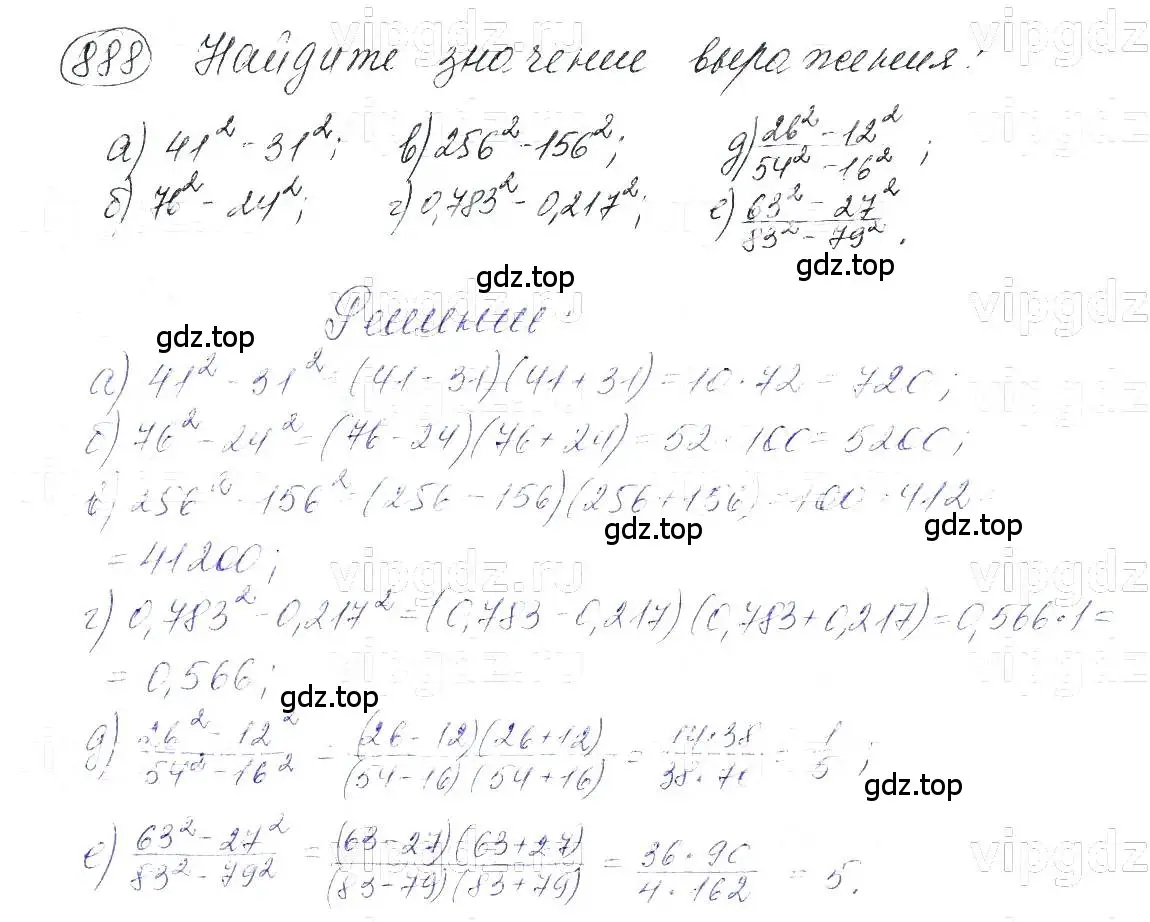 888 Найдите значение выражения:
а) 41² - 31²; в) 256² - 156²; д) (26² - 12²)/(54² - 16²);
б) 76² - 24²; г) 0,783² - 0,217²; е) (63² - 27²)/(83² - 79²).
gdz.top
gdz.top
vipgdz
Решение
gdz.top
а) 41² - 31² = (41 - 31)(41 + 31) = 10 · 72 = 720;
б) 76² - 24² = (76 - 24)(76 + 24) = 52 · 100 = 5200;
в) 256² - 156² = (256 - 156)(256 + 156) = 100 · 412 =
gdz.top
gdz.top
= 41200;
vipgdz.ru
г) 0,783² - 0,217² = (0,783 - 0,217)(0,783 + 0,217) = 0,566 · 1 =
= 0,566;
gdz.top
д) (26² - 12²)/(54² - 16²) = ((26 - 12)(26 + 12))/((54 - 16)(54 + 16)) = (14 · 38)/(38 · 70) = 1/5;
gdz.top
е) (63² - 27²)/(83² - 79²) = ((63 - 27)(63 + 27))/((83 - 79)(83 + 79)) = (36 · 90)/(4 · 162) = 5.